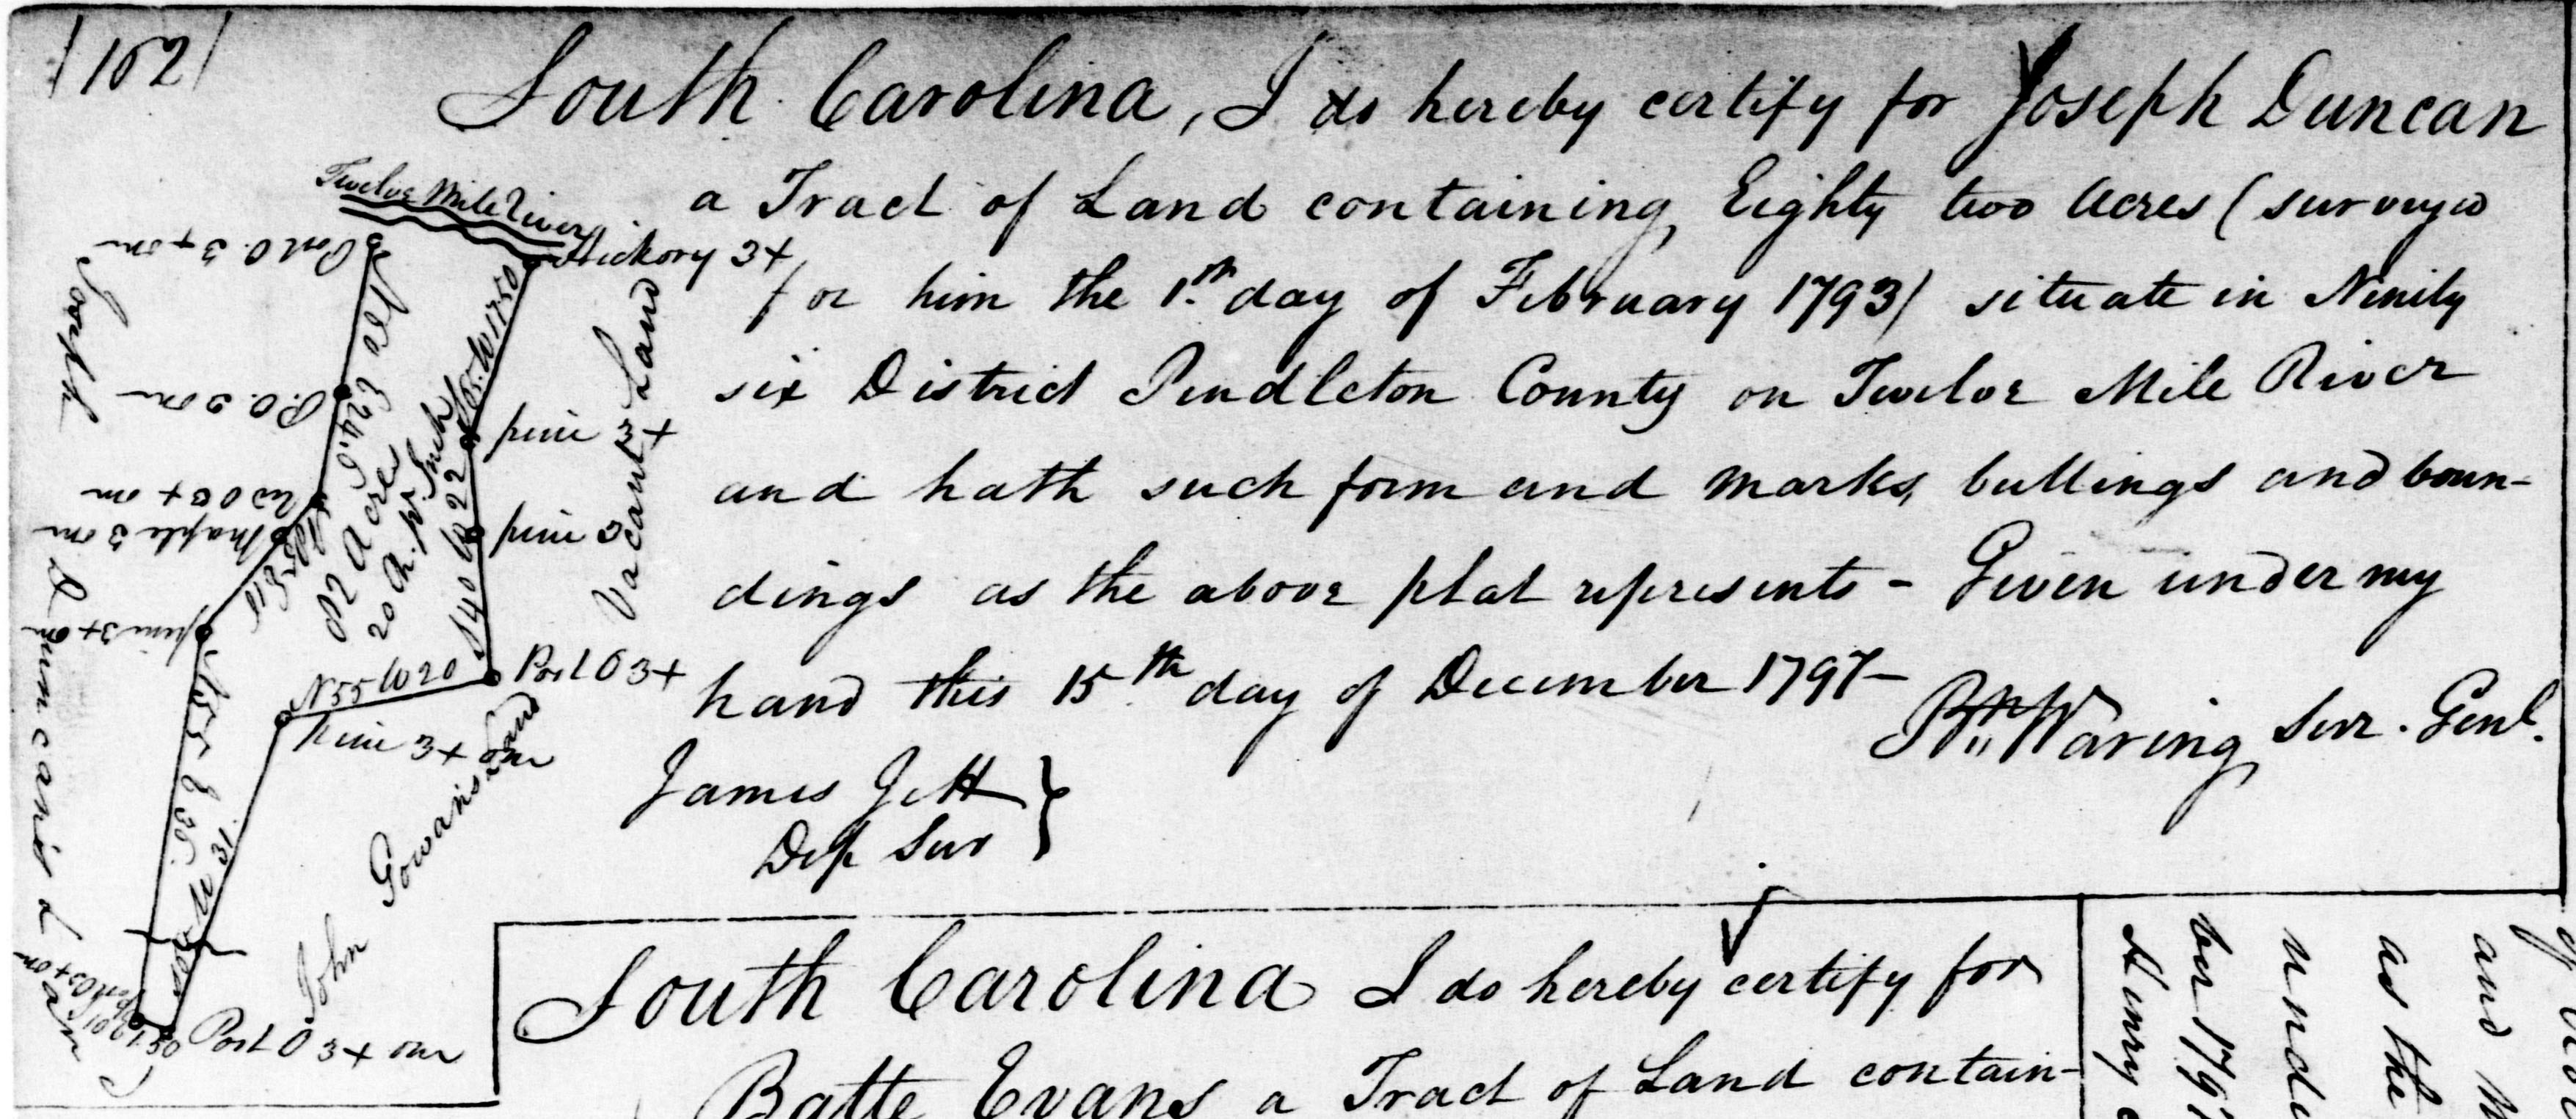 /102/
South Carolina, I do hereby certify for Joseph Duncan
a Tract of Land containing Eighty two acres (surveyd
for him the 1.th day of February 1793) situate in Ninity
six District Pendleton County on Twelve Mile River
and hath such form and marks, buttings and boun-
dings as the above plat represents - Given under my
hand this 15th day of December 1797-
Bn Waring Surr. Genl.
James Jett }
Dep Sur
Twelve Mile River
Hickory 3+
Post O. 3+ om
P.O. 3 om
Maple 3 om
pine 3+ om
pine 3+
pine 3
Post O 3+
pine 3+ om
Post O 3+ om
82 Acres
20 Ch. pr Inch
N 55 W 20
Vacant Land
John Gowan's Land
Joseph Duncan's Land
South Carolina I do hereby certify for
Batte Evans a Tract of Land contain-
and
as the
unde
ber 179
Henry